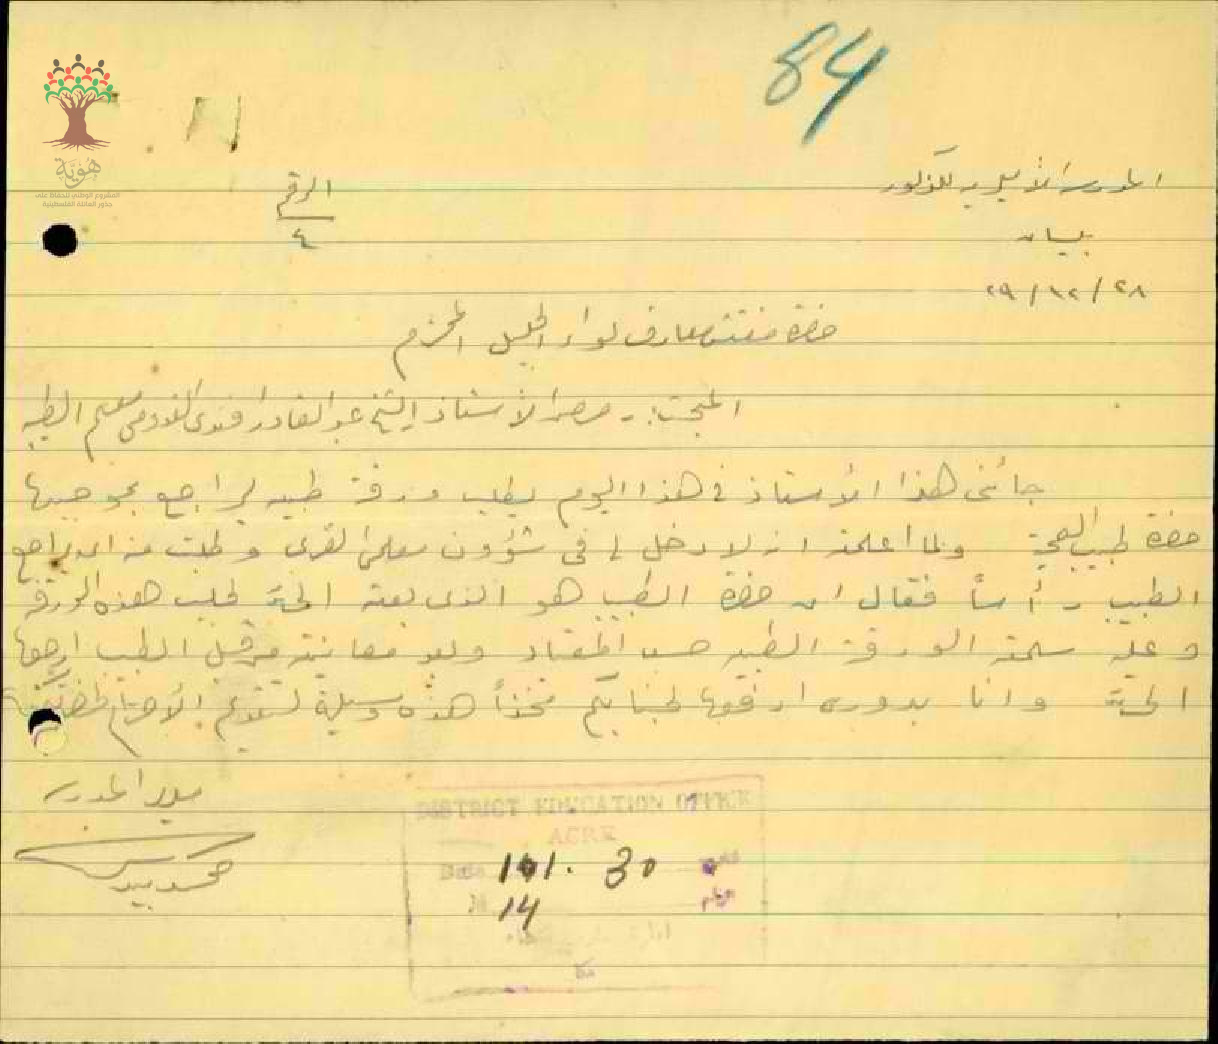 84
هُويَّة
المشروع الوطني للحفاظ على
جذور العائلة الفلسطينية
المدرسة الأميرية للذكور
الرقم
٤
بيسان
٢٨/١٢/٢٩
حضرة مفتش معارف لواء الجليل المحترم
المبحث: الأستاذ الشيخ عبد القادر افندي معلم الطيبة
جائني هذا الأستاذ في هذا اليوم يطلب ورقة طبية ليراجع بموجبها
حضرة طبيب الصحة ولما اعلمته ان لا دخل لي في شؤون معلمي القرى وطلبت منه ان يراجع
الطبيب رأساً فقال ان حضرة الطبيب هو الذي بعثه الي لطلب هذه الورقة
وعليه سلمته الورقة الطبية حسب المعتاد وبعد معاينته من قبل الطبيب ارجعها
الي وانا بدوري ارفعها لجنابكم متخذاً هذه وسيلة لتقديم الأحترام
مدير المدرسة
DISTRICT EDUCATION OFFICE
ACRE
Date 1/1. 30
№ 14
عكا